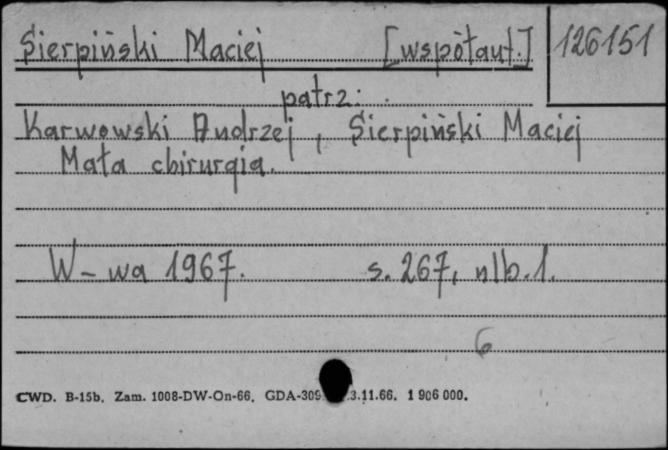 Sierpiński Maciej [współaut.] 126151
patrz:
Karwowski Andrzej, Sierpiński Maciej
Mała chirurgia.
W-wa 1967. s. 267, nlb. 1.
6
CWD. B-15b. Zam. 1008-DW-On-66. GDA-309 3.11.66. 1 906 000.